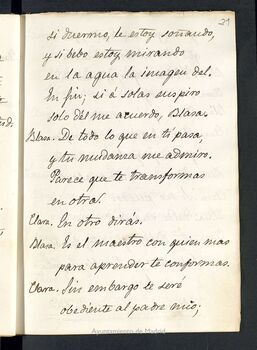 21
si duermo, le estoy soñando,
y si bebo estoy mirando
en la agua la imagen del.
En fin; si á solas suspiro
solo dél me acuerdo, Blasa.
Blasa. De todo lo que en ti pasa,
y tu mudanza me admiro.
Parece que te transformas
en otra.
Clara. En otro dirás.
Blasa. Es el maestro con quien mas
para aprender te conformas.
Clara. Sin embargo te seré
obediente al padre mio;
Ayuntamiento de Madrid